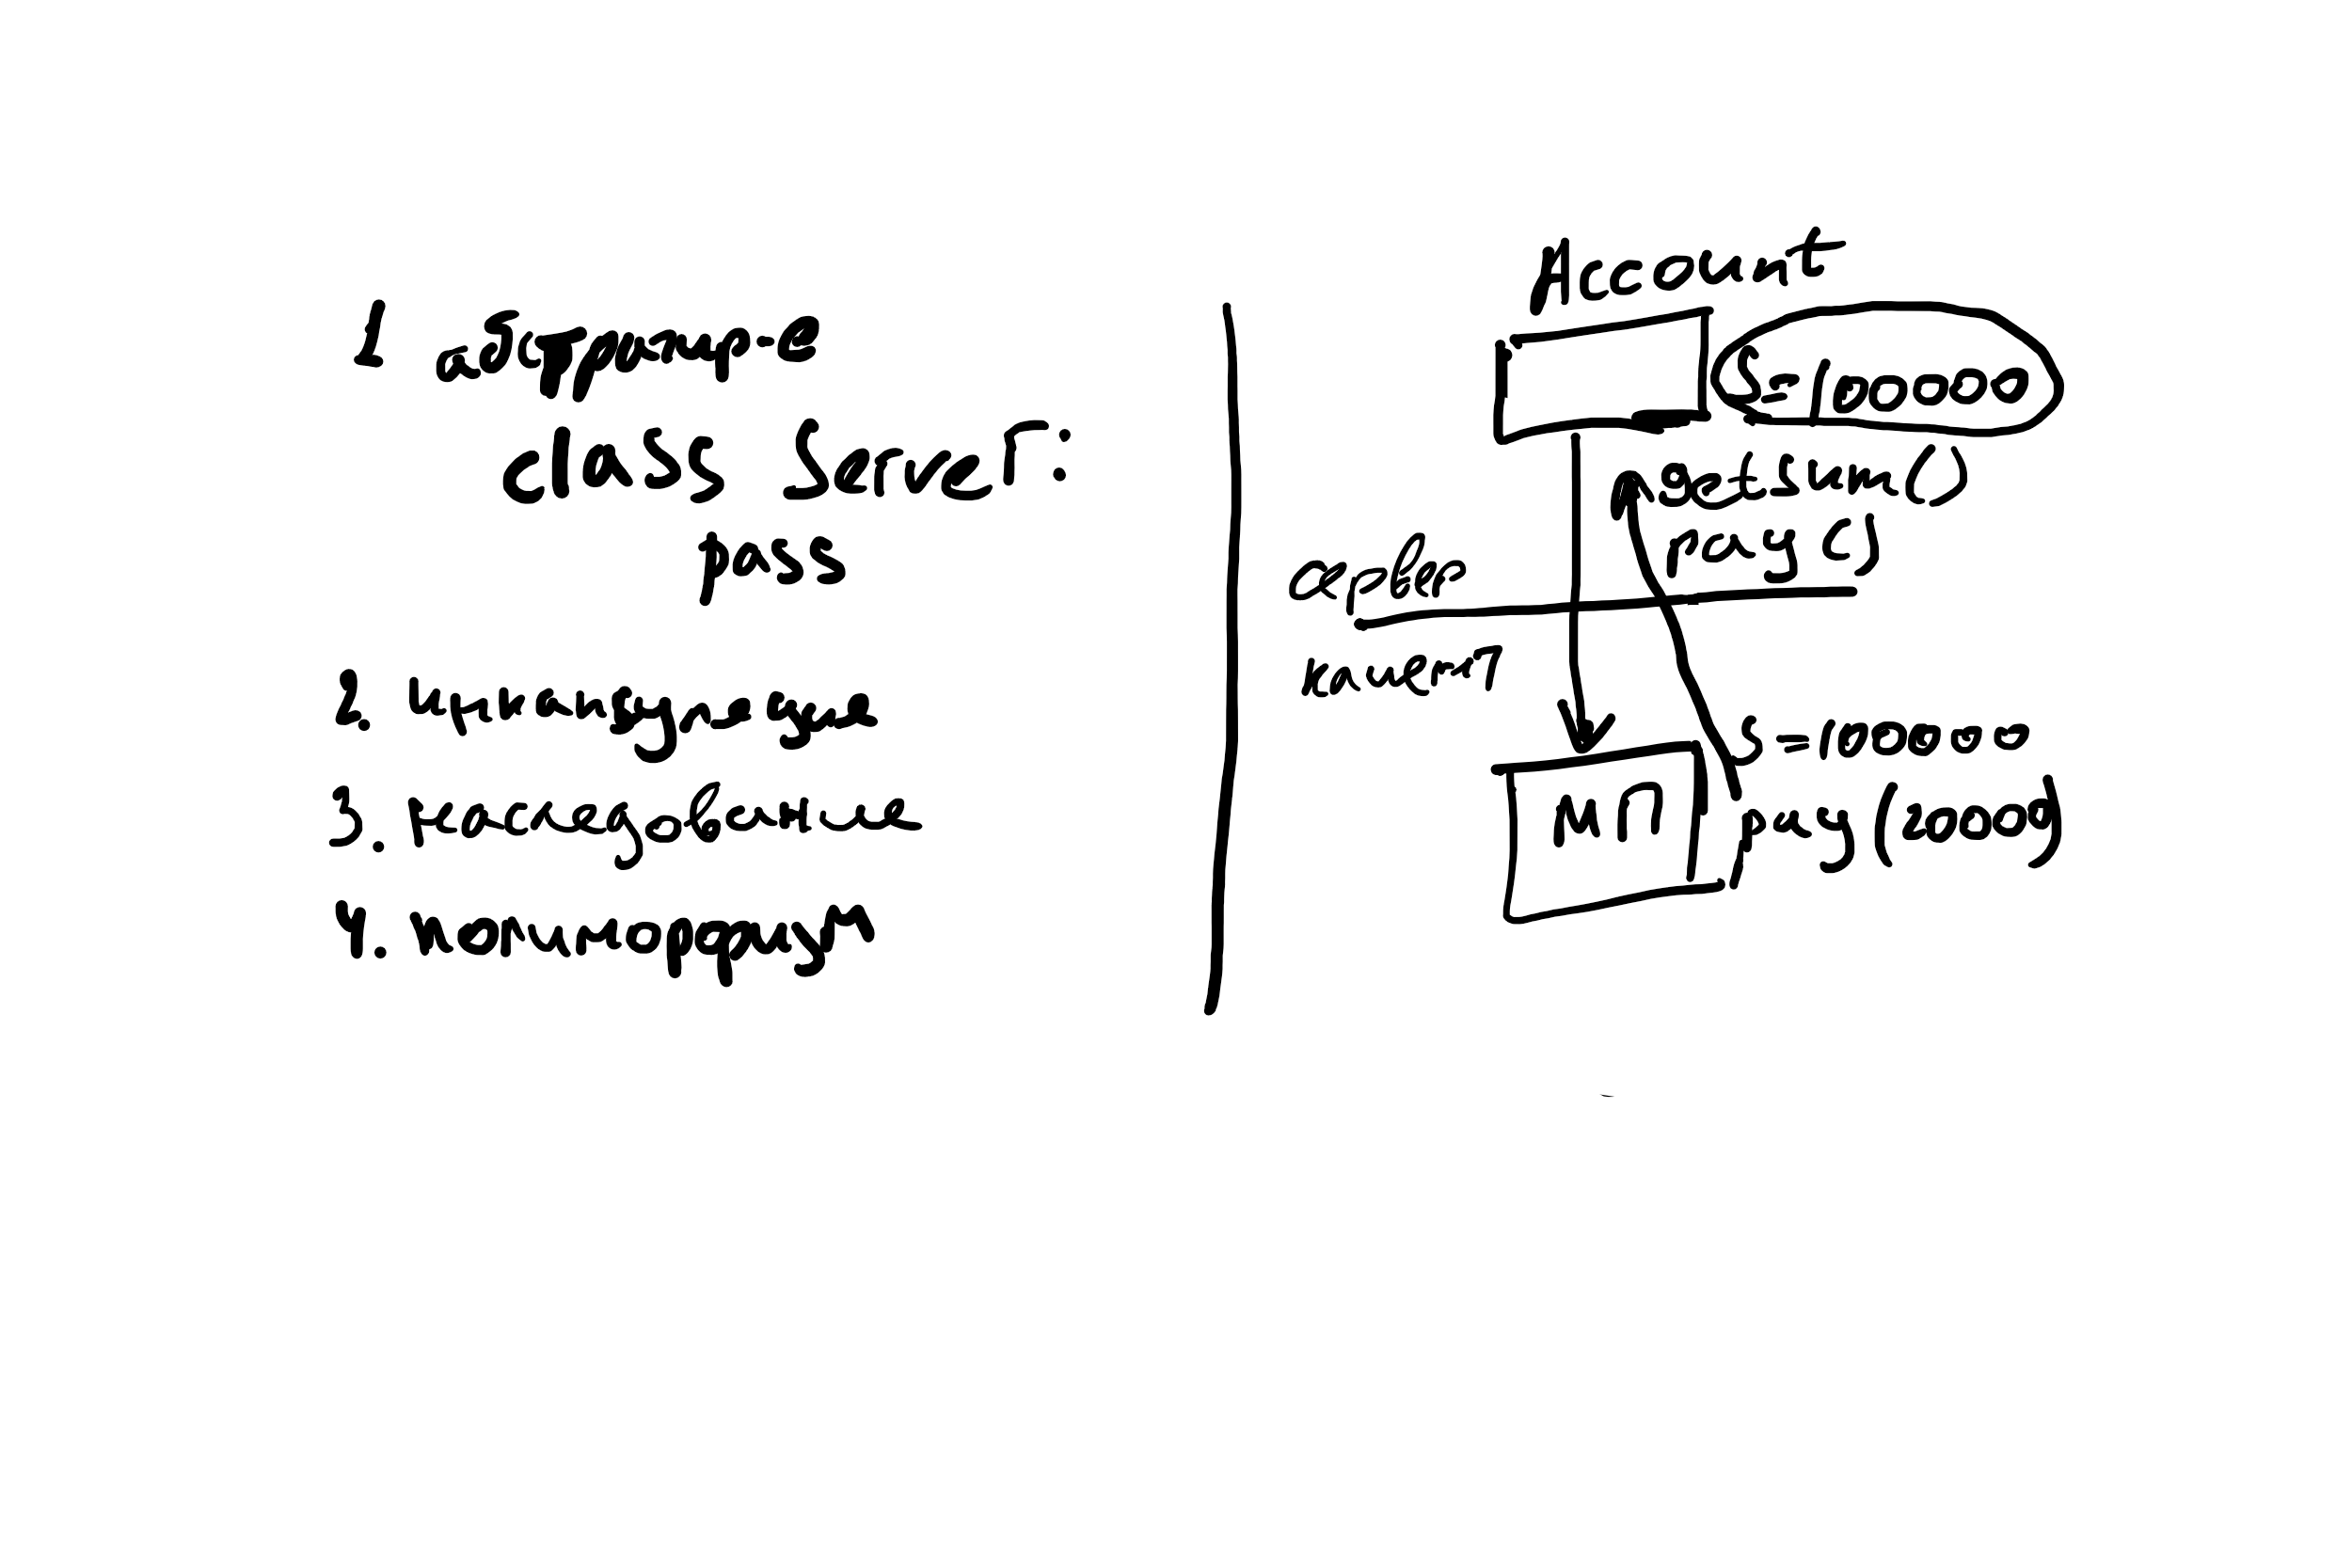 1 абстракция
class Server:
pass
2. инкапсуляция
3. наследование
4. полиморфизм
Account
S=100000
getsum()
pay()
сервер
клиент
МП
S=100000
pay(20000)